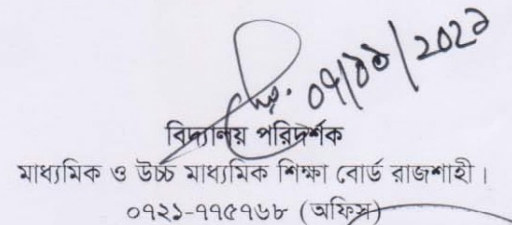 ০৭/১১/২০২১
বিদ্যালয় পরিদর্শক
মাধ্যমিক ও উচ্চ মাধ্যমিক শিক্ষা বোর্ড রাজশাহী।
০৭২১-৭৭৫৭৬৮ (অফিস)